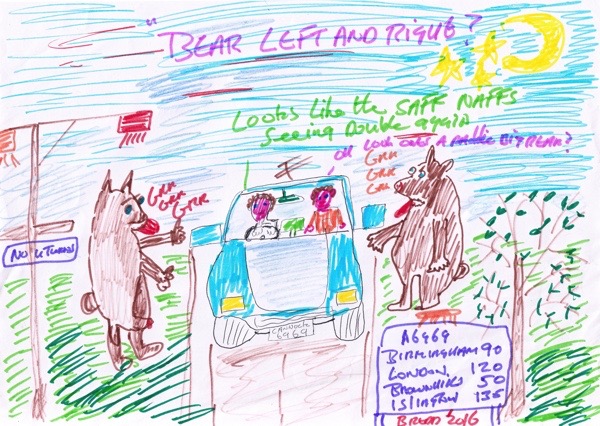 "BEAR LEFT AND RIGHT?"
Looks Like the SAFF NAFFS
Seeing Double again
oh Look out! A BIT REAM?
GRR
GRR
GRR
GRR
GRR
GRR
NO U TURNS
CANNOCK
6969
A6969
BIRMINGHAM 90
LONDON 120
BROWNHILLS 50
ISLINGTON 135
2016